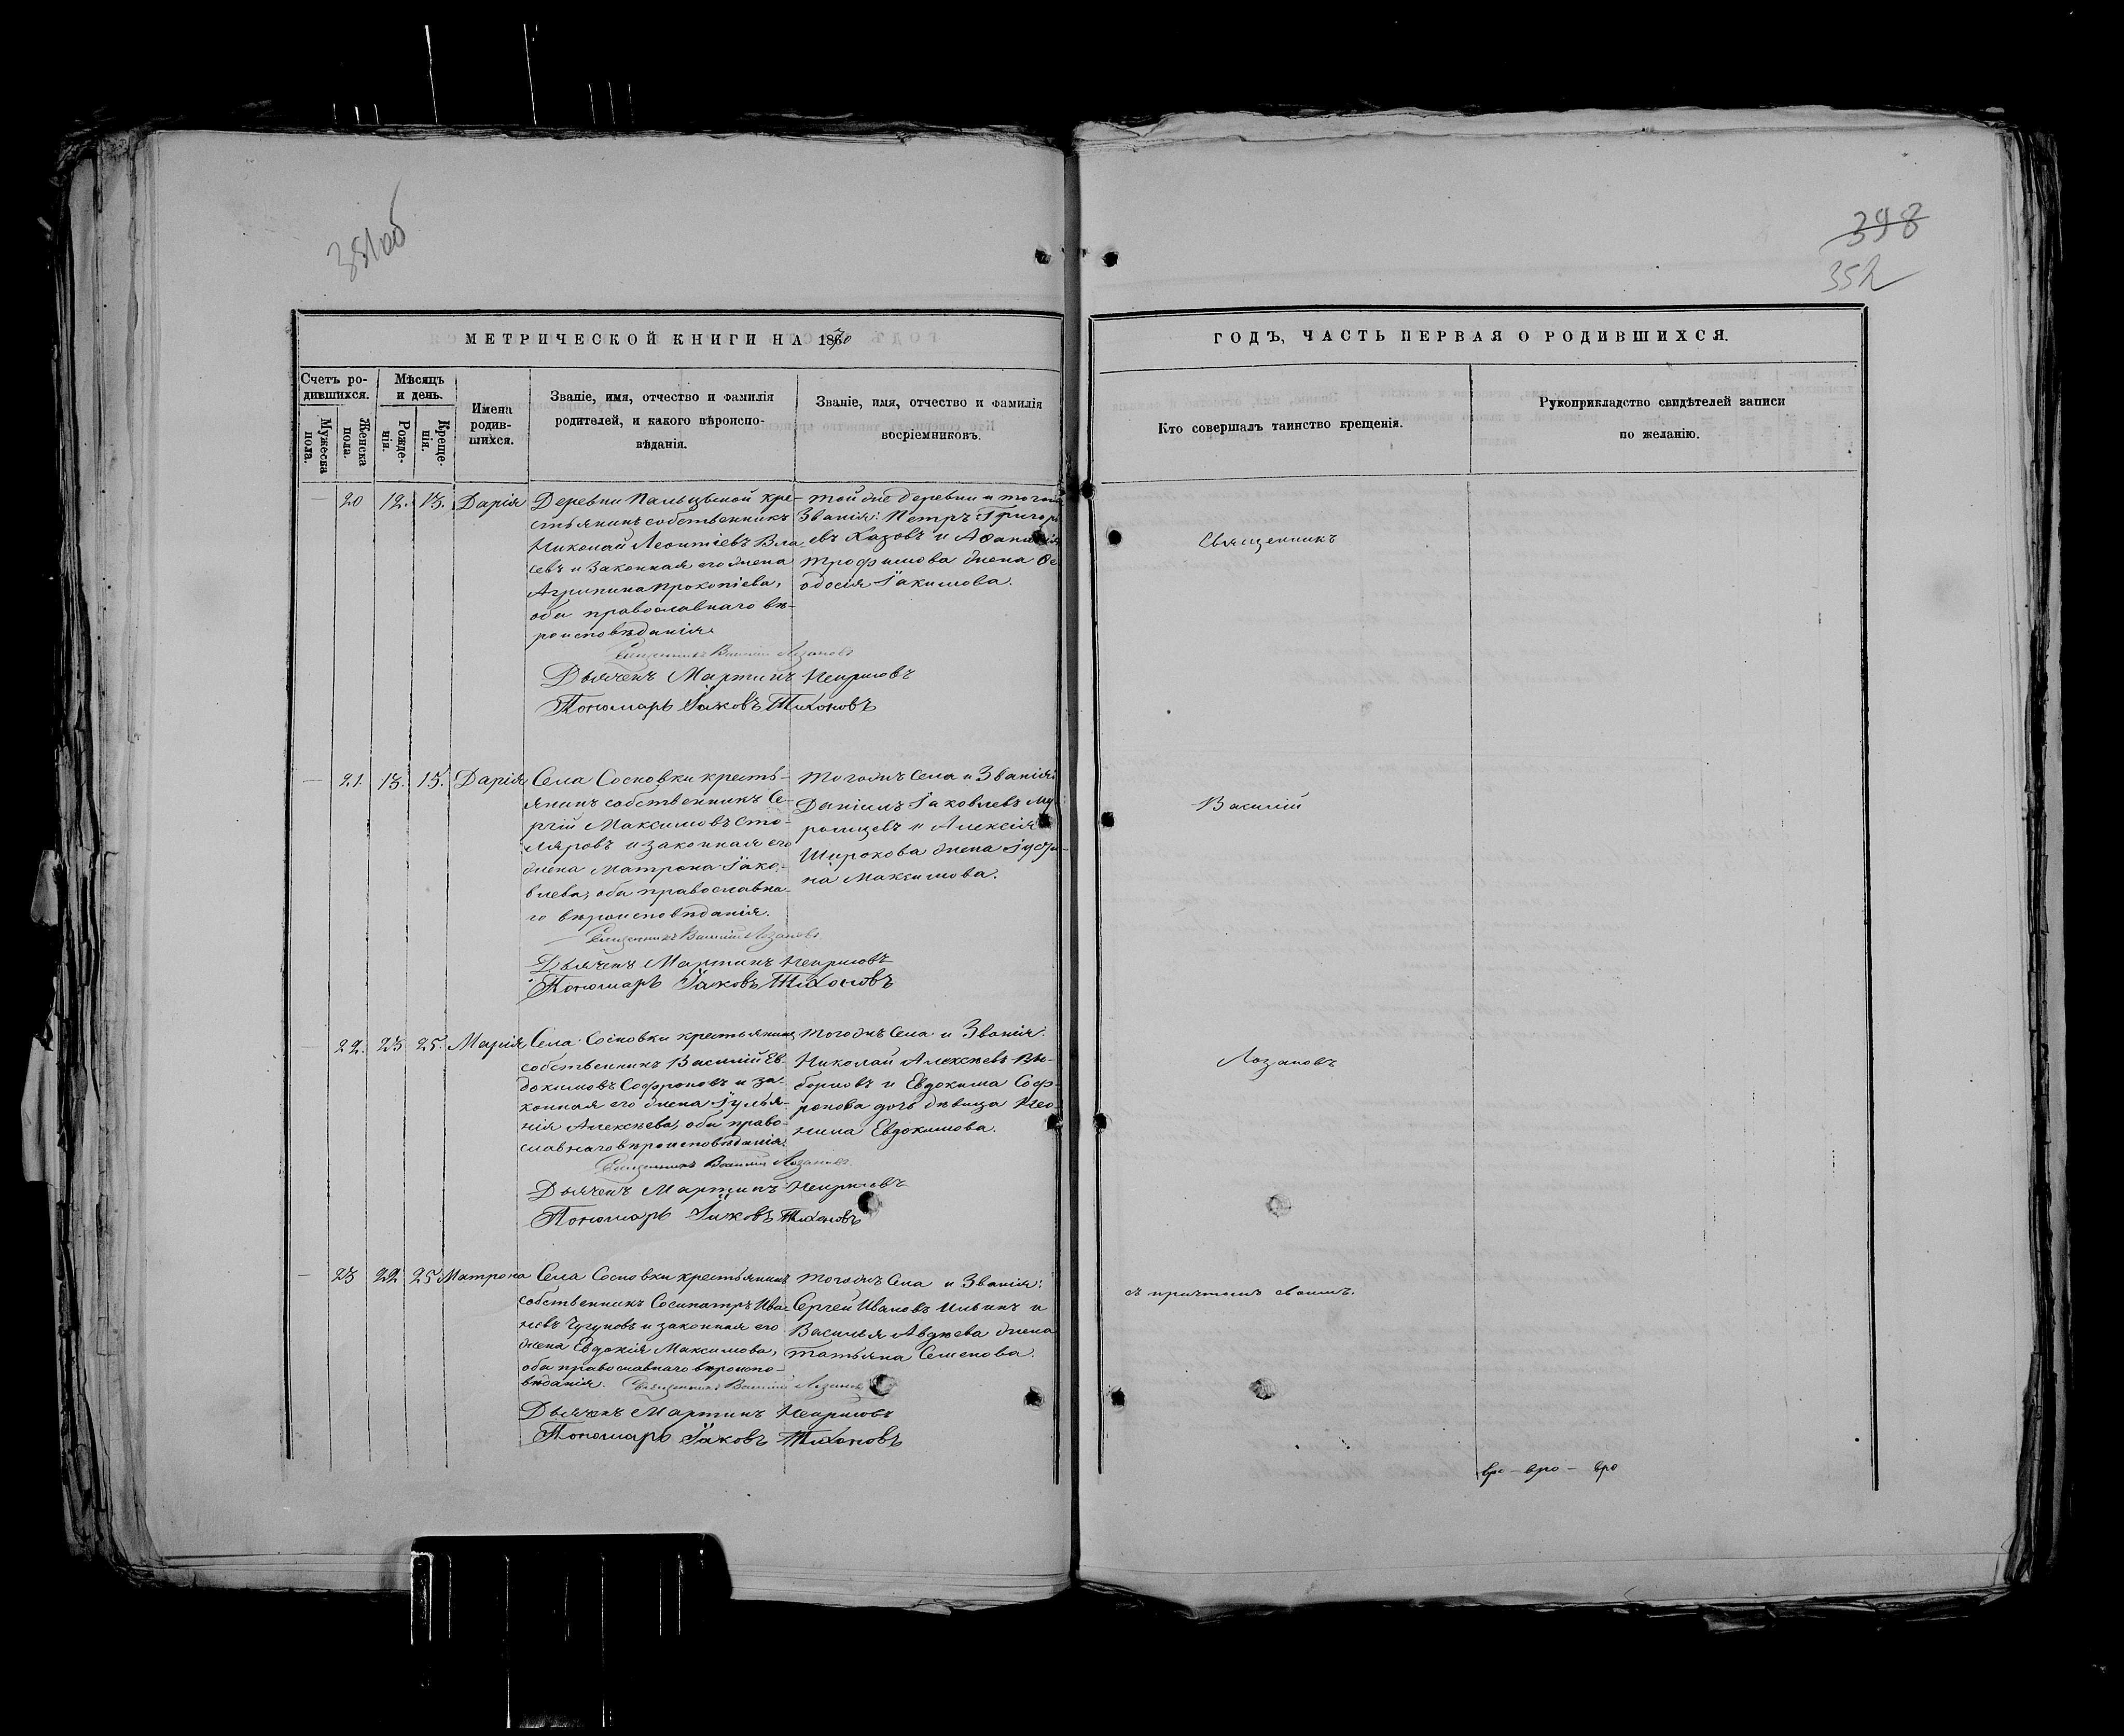 351об
398
352
МЕТРИЧЕСКОЙ КНИГИ НА 1870
ГОДЪ, ЧАСТЬ ПЕРВАЯ О РОДИВШИХСЯ.
Счетъ ро-
дившихся.
Мужеска пола.
Женска пола.
Мѣсяцъ
и день.
Рожде-
нія.
Креще-
нія.
Имена
родив-
шихся.
Званіе, имя, отчество и фамилія
родителей, и какого вѣроиспо-
вѣданія.
Званіе, имя, отчество и фамилія
воспріемниковъ.
Кто совершалъ таинство крещенія.
Рукоприкладство свидѣтелей записи
по желанію.
20 12. 13. Дарія
Деревни Пальцьной кре-
стьянинъ собственникъ
Николай Леонтіевъ Вла-
севъ и законная его жена
Агрипина Прокопіева,
оба православнаго вѣ-
роисповѣданія.
Священникъ Василій Лозановъ
Дьячекъ Мартинъ
Пономарь Іаковъ Тихоновъ
той же деревни и того
Званія: Петръ Григорь
евъ Хазовъ и Аѳанасія
Трофимова жена Ѳе
одосія Іакимова.
Священникъ
21. 13. 15. Дарія
Села Сосновки кресть-
янинъ собственникъ Се-
ргій Максимовъ Сто-
ляровъ и законная его
жена Матрона Іако-
влева, оба православна-
го вѣроисповѣданія.
Священникъ Василій Лозановъ
Дьячекъ Мартинъ
Пономарь Іаковъ Тихоновъ
Тогожъ Села и Званія:
Даніилъ Іаковлевъ Му-
ромцевъ и Алексія
Широкова жена Іусти-
на Максимова.
Василій
22. 23 25. Марія
Села Сосновки крестьянинъ
собственникъ Василій Ев-
докимовъ Софроновъ и за-
конная его жена Іулья-
нія Алексѣева, оба право-
славнаго вѣроисповѣданія.
Священникъ Василій Лозановъ
Дьячекъ Мартинъ
Пономарь Іаковъ Тихоновъ
Тогожъ Села и Званія:
Николай Алексѣевъ Вы-
борновъ и Евдокима Соф-
ронова дочь дѣвица Нео-
нила Евдокимова.
Лозановъ
23 22 25 Матрона
Села Сосновки крестьянинъ
собственникъ Сосипатръ Ива-
новъ Чугуновъ и законная его
жена Евдокія Максимова,
оба православнаго вѣроиспо-
вѣданія. Священникъ Василій Лозановъ
Дьячекъ Мартинъ
Пономарь Іаковъ Тихоновъ
Тогожъ Села и Званія:
Сергей Ивановъ Ильинъ и
Василья Авдѣева жена
Татьяна Семенова.
съ причтомъ своимъ.